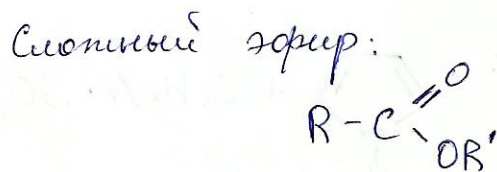 Сложный эфир:
O
R - C
OR'